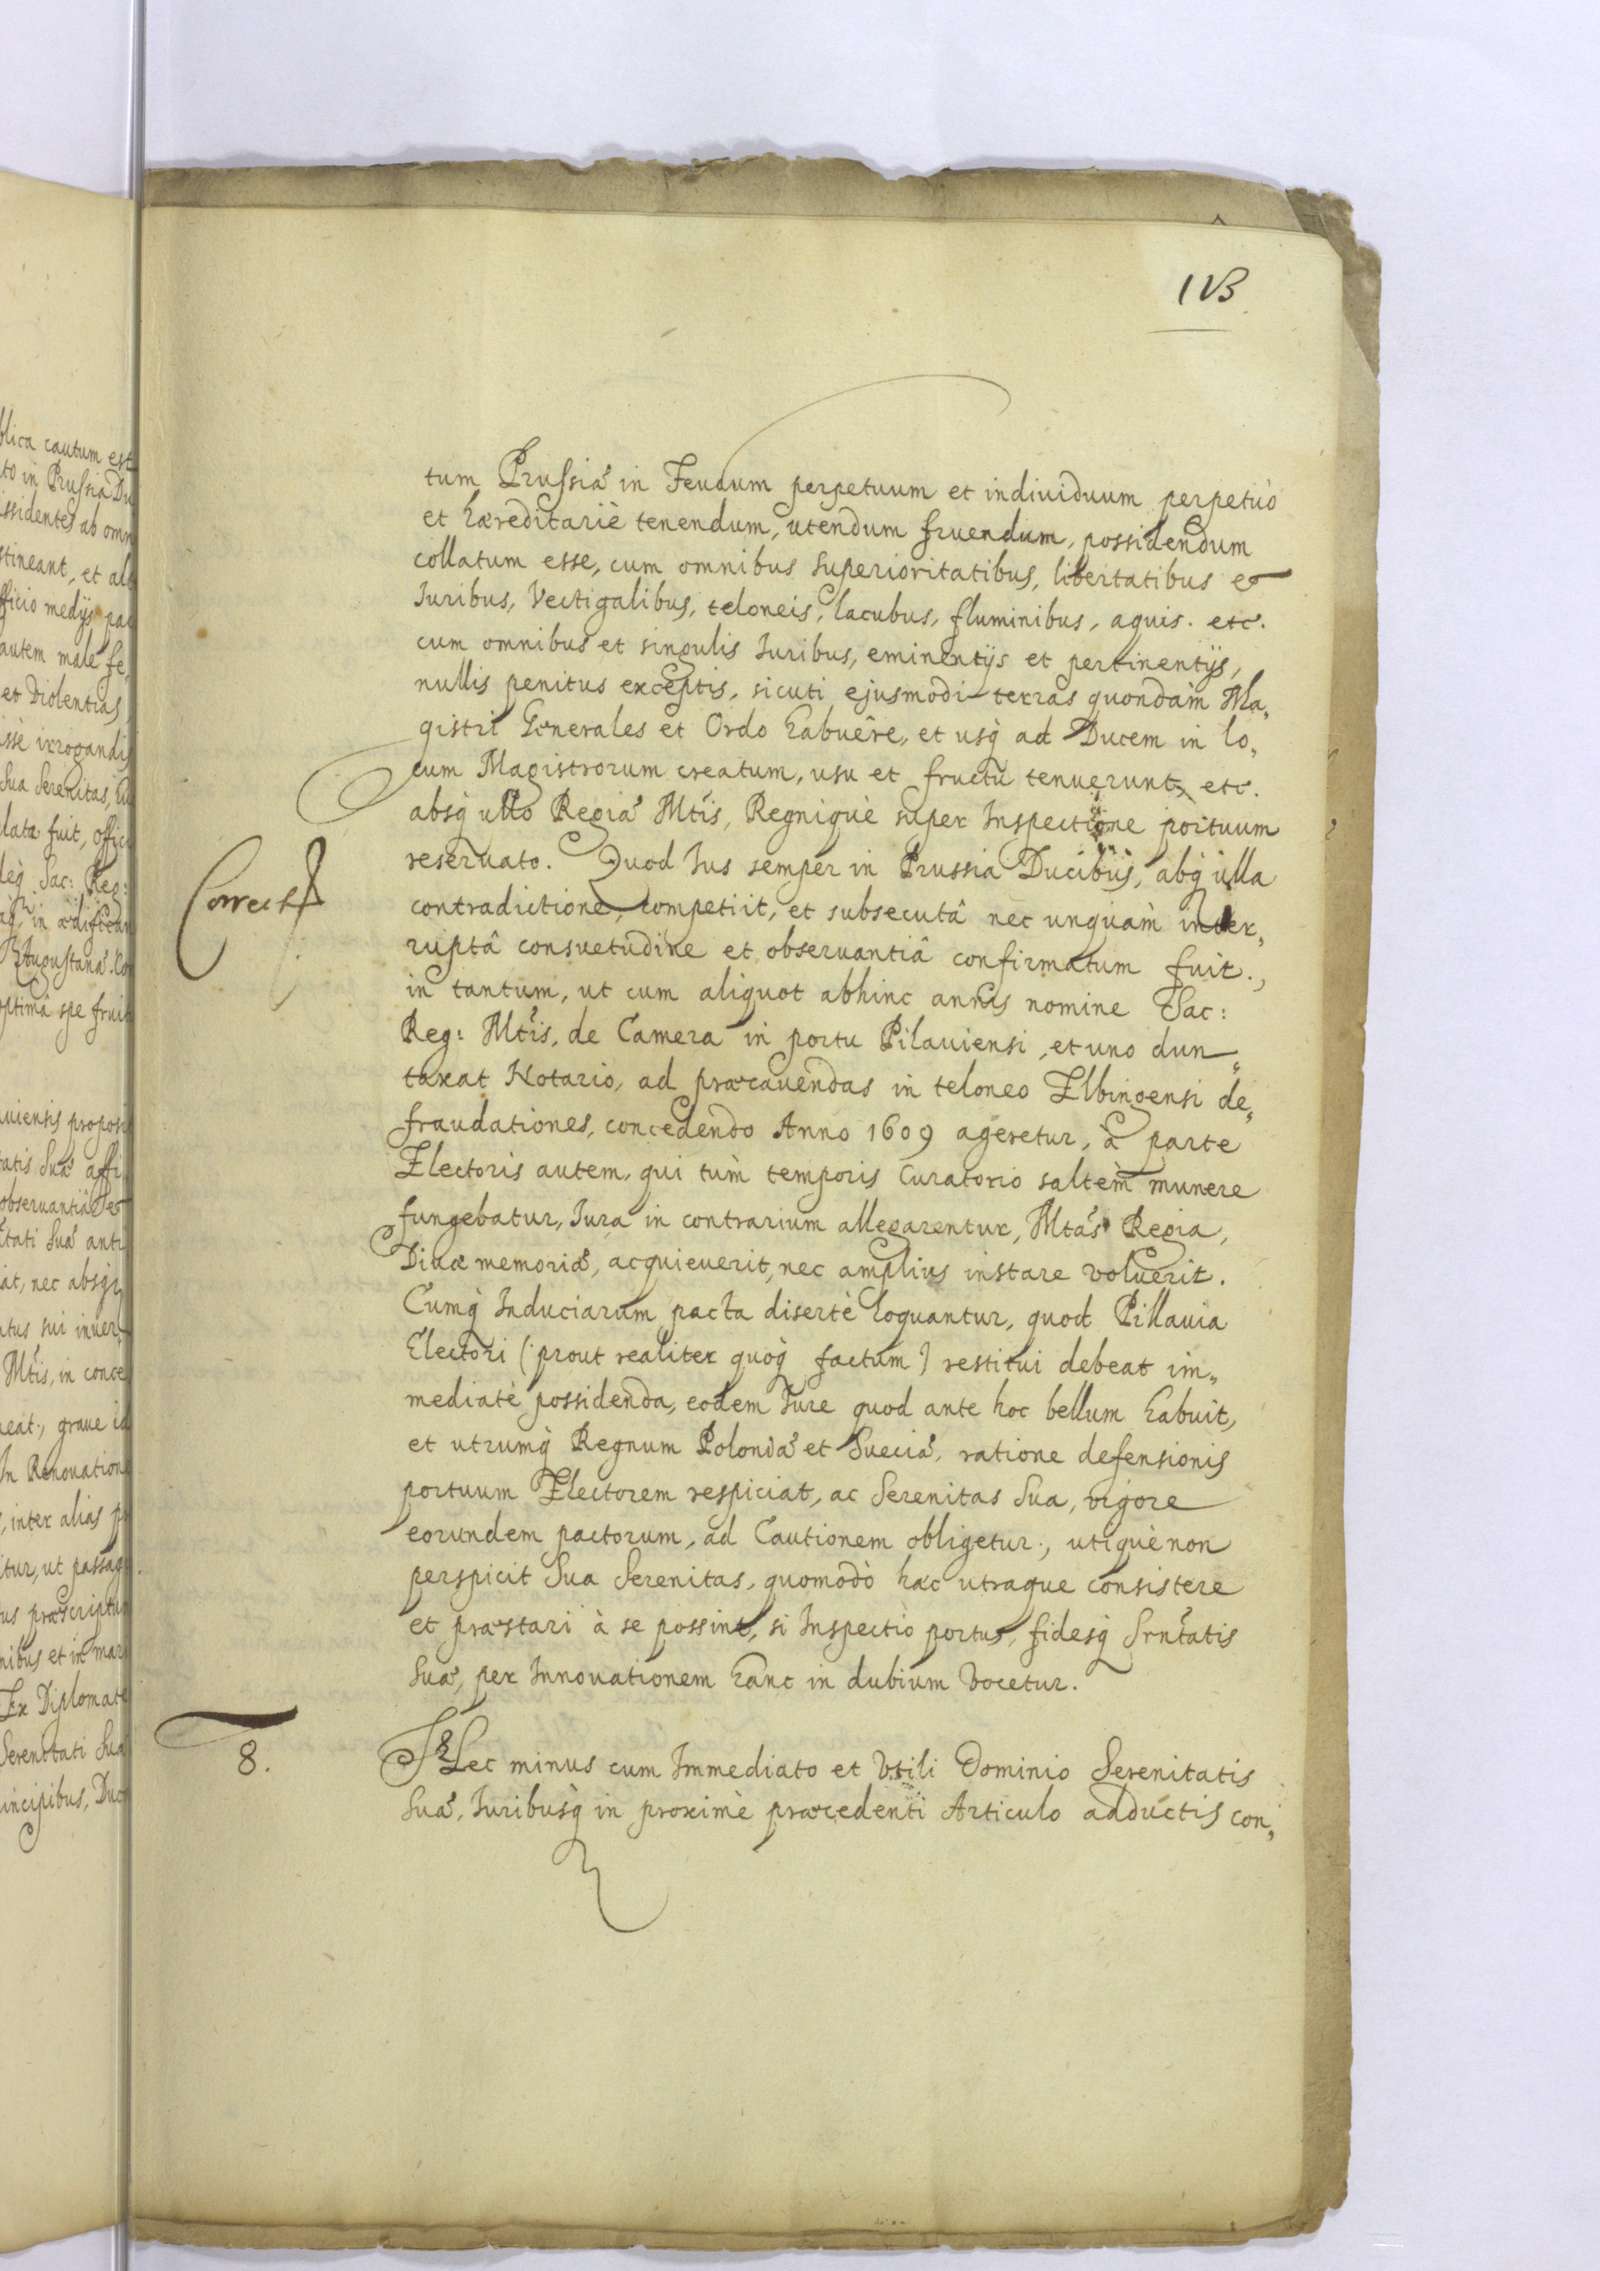 113
tum Prussiæ in Feudum perpetuum et indiuiduum perpetuò
et hæreditariè tenendum, utendum fruendum, possidendum
collatum esse, cum omnibus superioritatibus, libertatibus et
Iuribus, Vectigalibus, teloneis, lacubus, fluminibus, aquis. etc.
cum omnibus et singulis Iuribus, eminentijs et pertinentijs,
nullis penitus exceptis, sicuti ejusmodi terras quondàm Ma„
gistri Generales et Ordo habuêre, et usq̀ ad Ducem in lo„
cum Magistrorum creatum, usu et fructu tenuerunt, etc.
absq̀ ullo Regiæ Mtis, Regniquè super Inspectione portuum
reseruato. Quod Ius semper in Prussia Ducibus, absq̀ ulla
Correct
contradictione, competiit, et subsecutâ nec unquàm inter„
ruptâ consuetudine et obseruantiâ confirmatum fuit.,
in tantum, ut cum aliquot abhinc annis nomine Sac:
Reg: Mtis, de Camera in portu Pilauiensi, et uno dun„
taxat Notario, ad præcauendas in teloneo Elbingensi de„
fraudationes, concedendo Anno 1609 ageretur, à parte
Electoris autem, qui tùm temporis Curatorio saltèm munere
fungebatur, Iura in contrarium allegarentur, Mtas Regia,
Diuæ memoriæ, acquieuerit, nec amplius instare voluerit.
Cumq̀ Induciarum pacta disertè loquantur, quod Pillauia
Electori (prout realiter quòq̀ factum) restitui debeat im„
mediatè possidenda, eodem Iure quod ante hoc bellum habuit,
et utrumq̀ Regnum Poloniæ et Sueciæ, ratione defensionis
portuum Electorem respiciat, ac Serenitas Sua, vigore
eorundem pactorum, ad Cautionem obligetur., utiquè non
perspicit Sua Serenitas, quomodò hæc utraque consistere
et præstari à se possint, si Inspectio portus, fidesq̀ Srntatis
Suæ, per Innouationem hanc in dubium vocetur.
8.
Nec minus cum Immediato et Vtili Dominio Serenitatis
Suæ, Iuribusq̀ in proximè præcedenti Articulo adductis con„